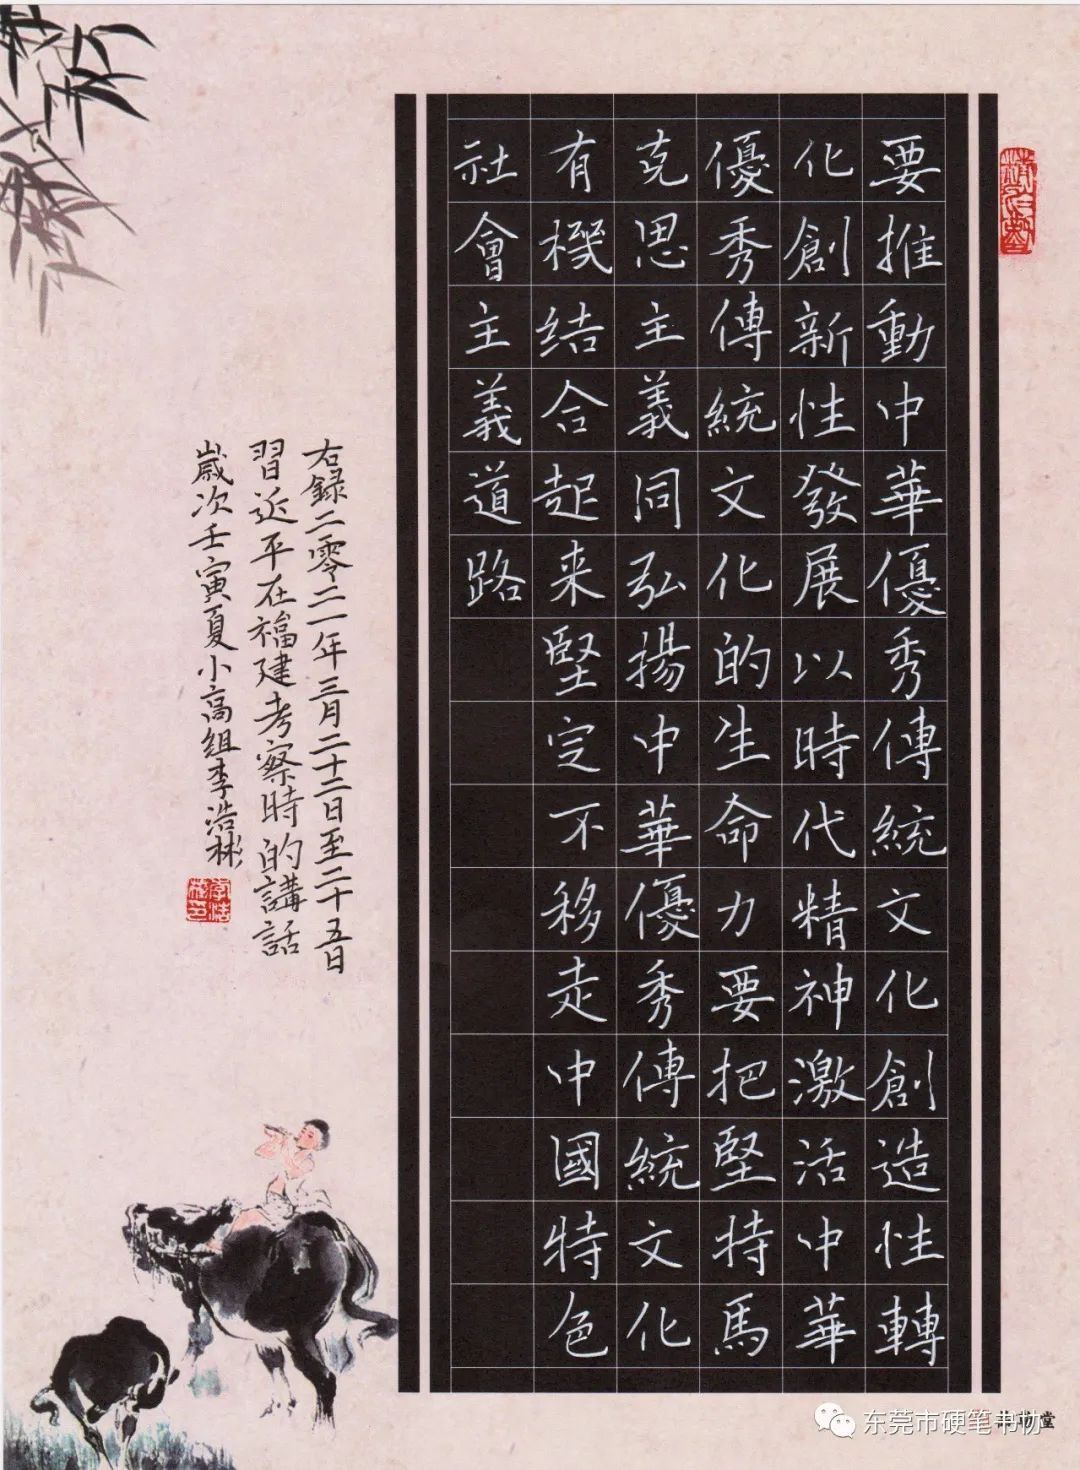 要推動中華優秀傳統文化創造性轉
化創新性發展以時代精神激活中華
優秀傳統文化的生命力要把堅持馬
克思主義同弘揚中華優秀傳統文化
有機结合起来堅定不移走中國特色
社會主義道路
右録二零二一年三月二十二日至二十五日
習近平在福建考察時的講話
歲次壬寅夏小高組李浩彬
东莞市硬笔书协